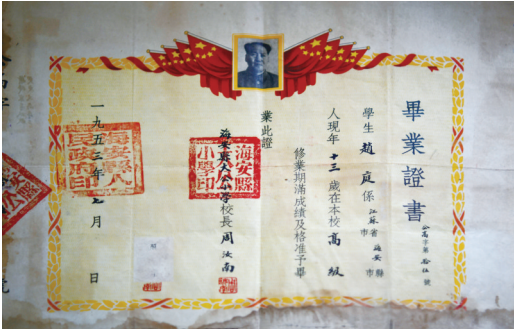 畢業證書
公高字第拾伍號
學生趙庭係江蘇省市海安縣市
人現年十三歲在本校高級
修業期滿成績及格准予畢
業此證
海安縣大公小學校長周汝南
海安縣
小學印
一九五三年七月日
海安縣人
民政府印